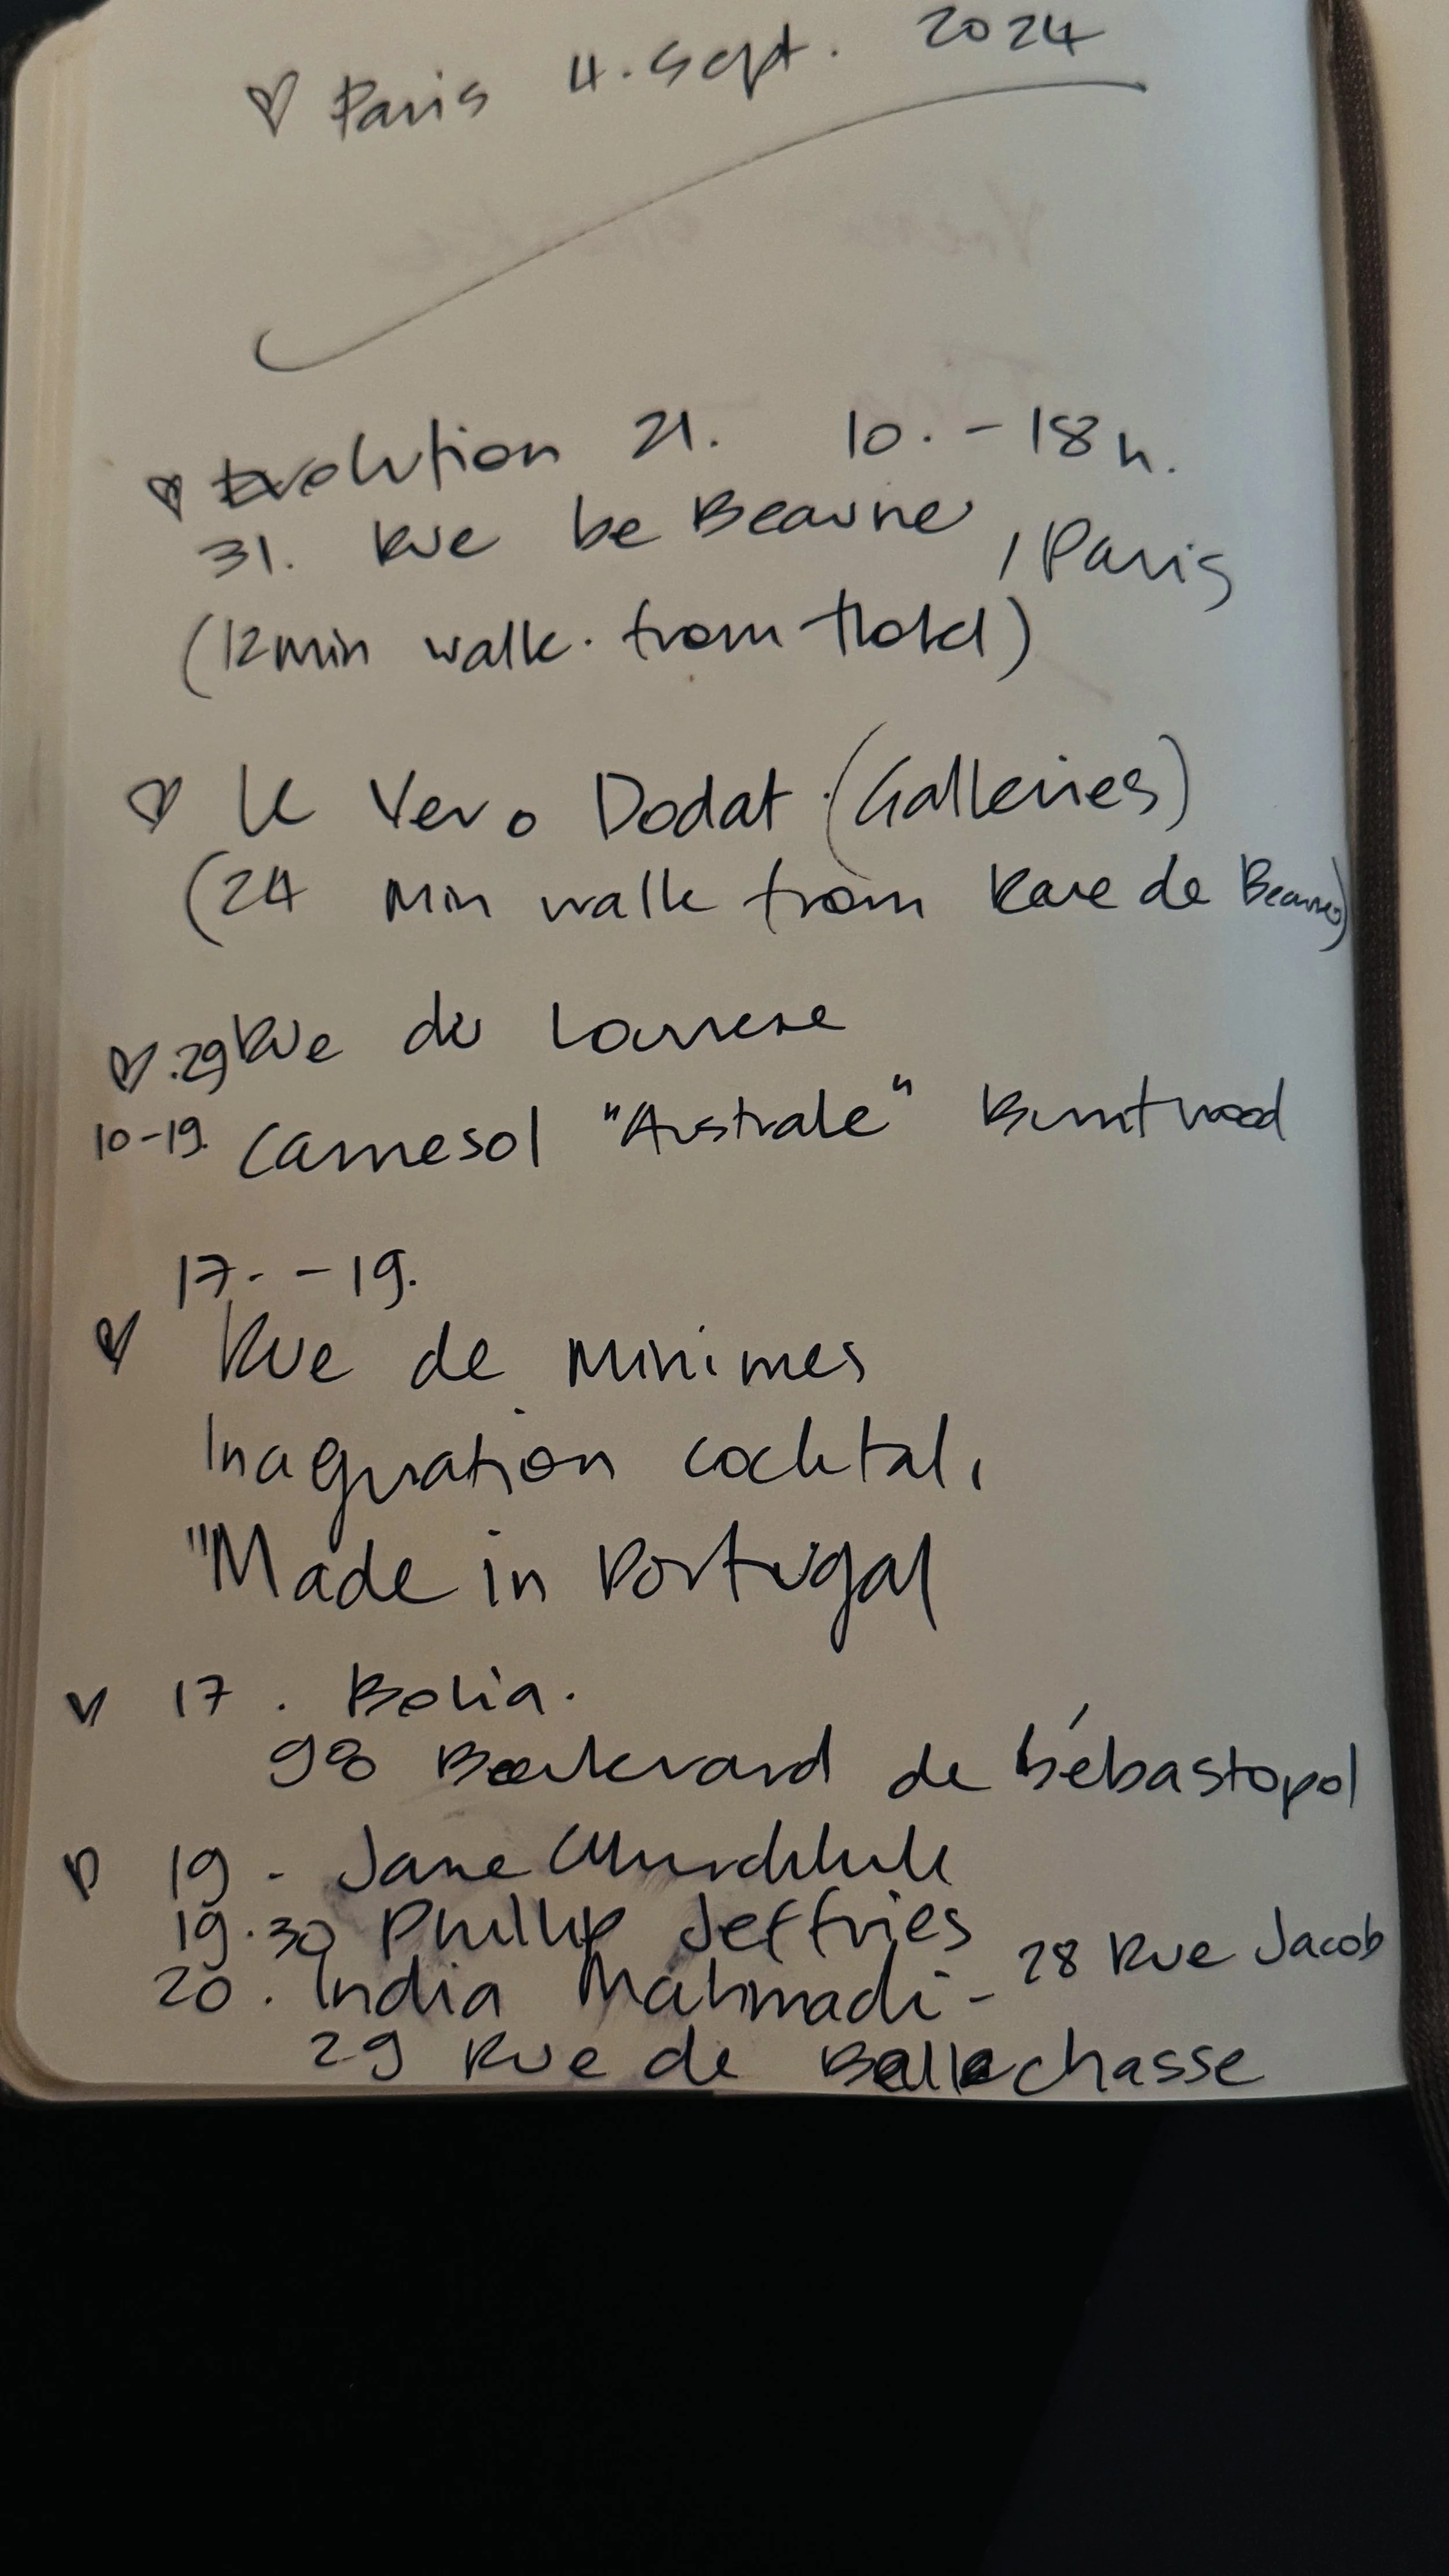 ♡ Paris 4. Sept. 2024
♡ Evolution 21. 10. - 18 h.
31. Rue be Beaune, Paris
(12 min walk. from Hotel)
♡ le Vero Dodat (Galleries)
(24 min walk from Rue de Beaune)
♡ .29 Rue du Louvre
10-19. Camesol "Australe" Burntwood
17. - 19.
♡ Rue de Minimes
Inaguration cocktal,
"Made in Portugal
♡ 17. Bolia.
98 Boulevard de Sébastopol
♡ 19 - Jane Churchhill
19.30 Phillip Jeffries
20. India Mahmadi - 28 Rue Jacob
29 Rue de Bellechasse